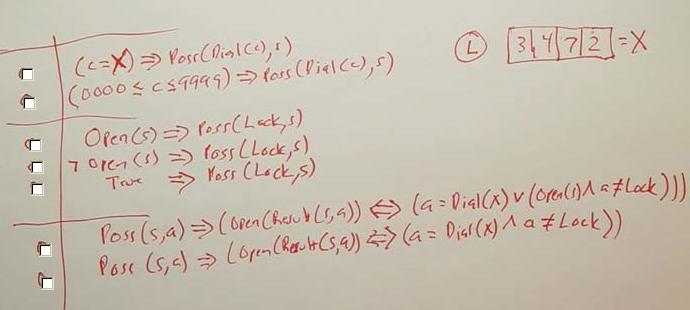 (c=X) ⇒ Poss(Dial(c),s)
(0000 ≤ c ≤ 9999) ⇒ Poss(Dial(c),s)
Ⓛ 3 4 7 2 = X
Open(s) ⇒ Poss(Lock,s)
¬ Open(s) ⇒ Poss(Lock,s)
True ⇒ Poss(Lock,s)
Poss(s,a) ⇒ (Open(Result(s,a)) ⇔ (a = Dial(x) ∨ (Open(s) ∧ a ≠ Lock)))
Poss(s,a) ⇒ (Open(Result(s,a)) ⇔ (a = Dial(x) ∧ a ≠ Lock))